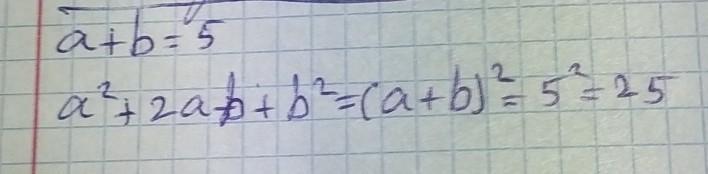 a+b=5
a²+2ab+b²=(a+b)²=5²=25